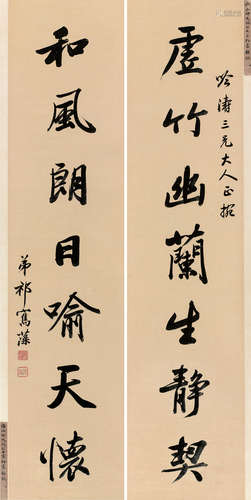 吟濤三兄大人正撰
虛竹幽蘭生靜契
和風朗日喻天懷
弟祁寯藻